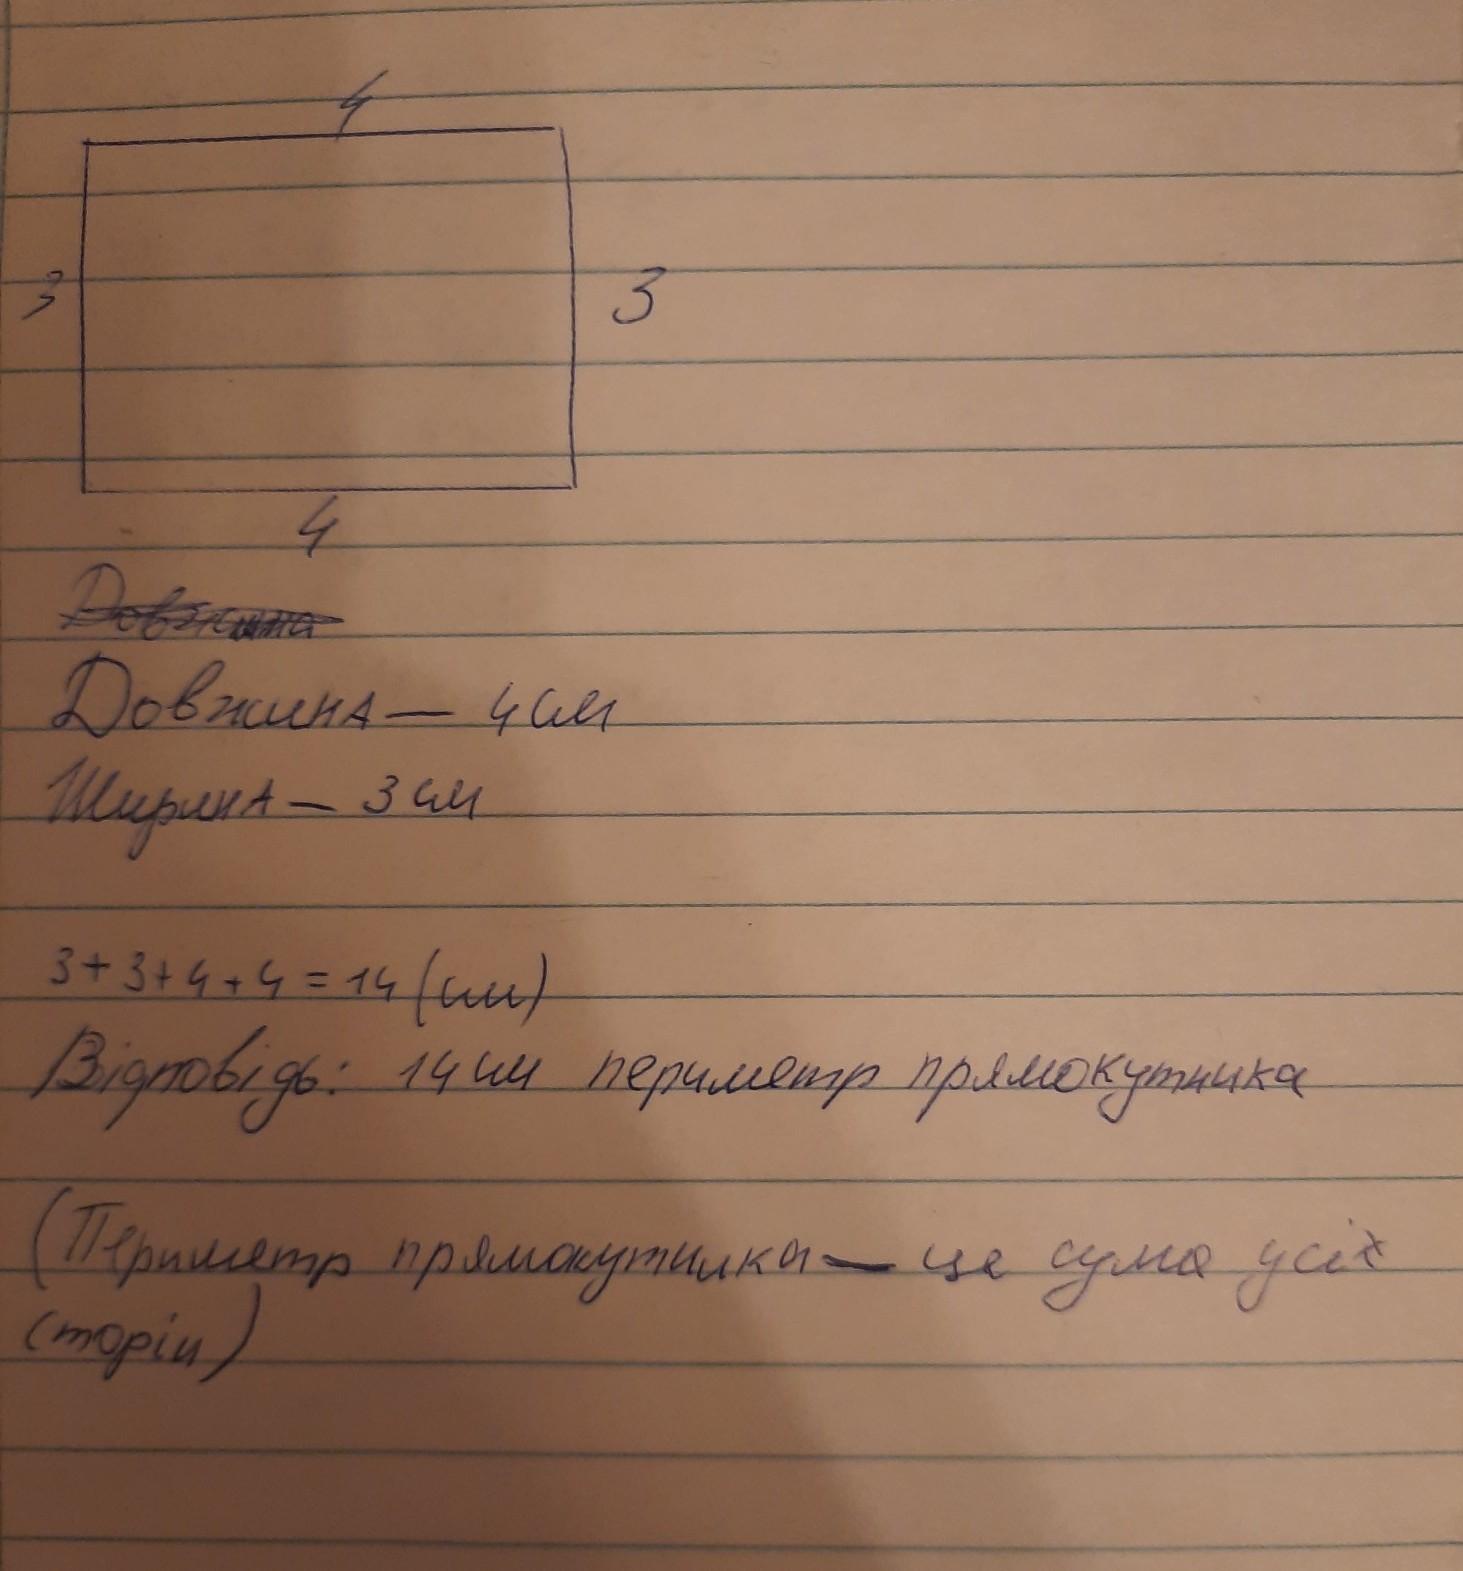 4
3
3
4
Довжина
Довжина — 4 см
Ширина — 3 см
3 + 3 + 4 + 4 = 14 (см)
Відповідь: 14 см периметр прямокутника
(Периметр прямокутника — це сума усіх
сторін)